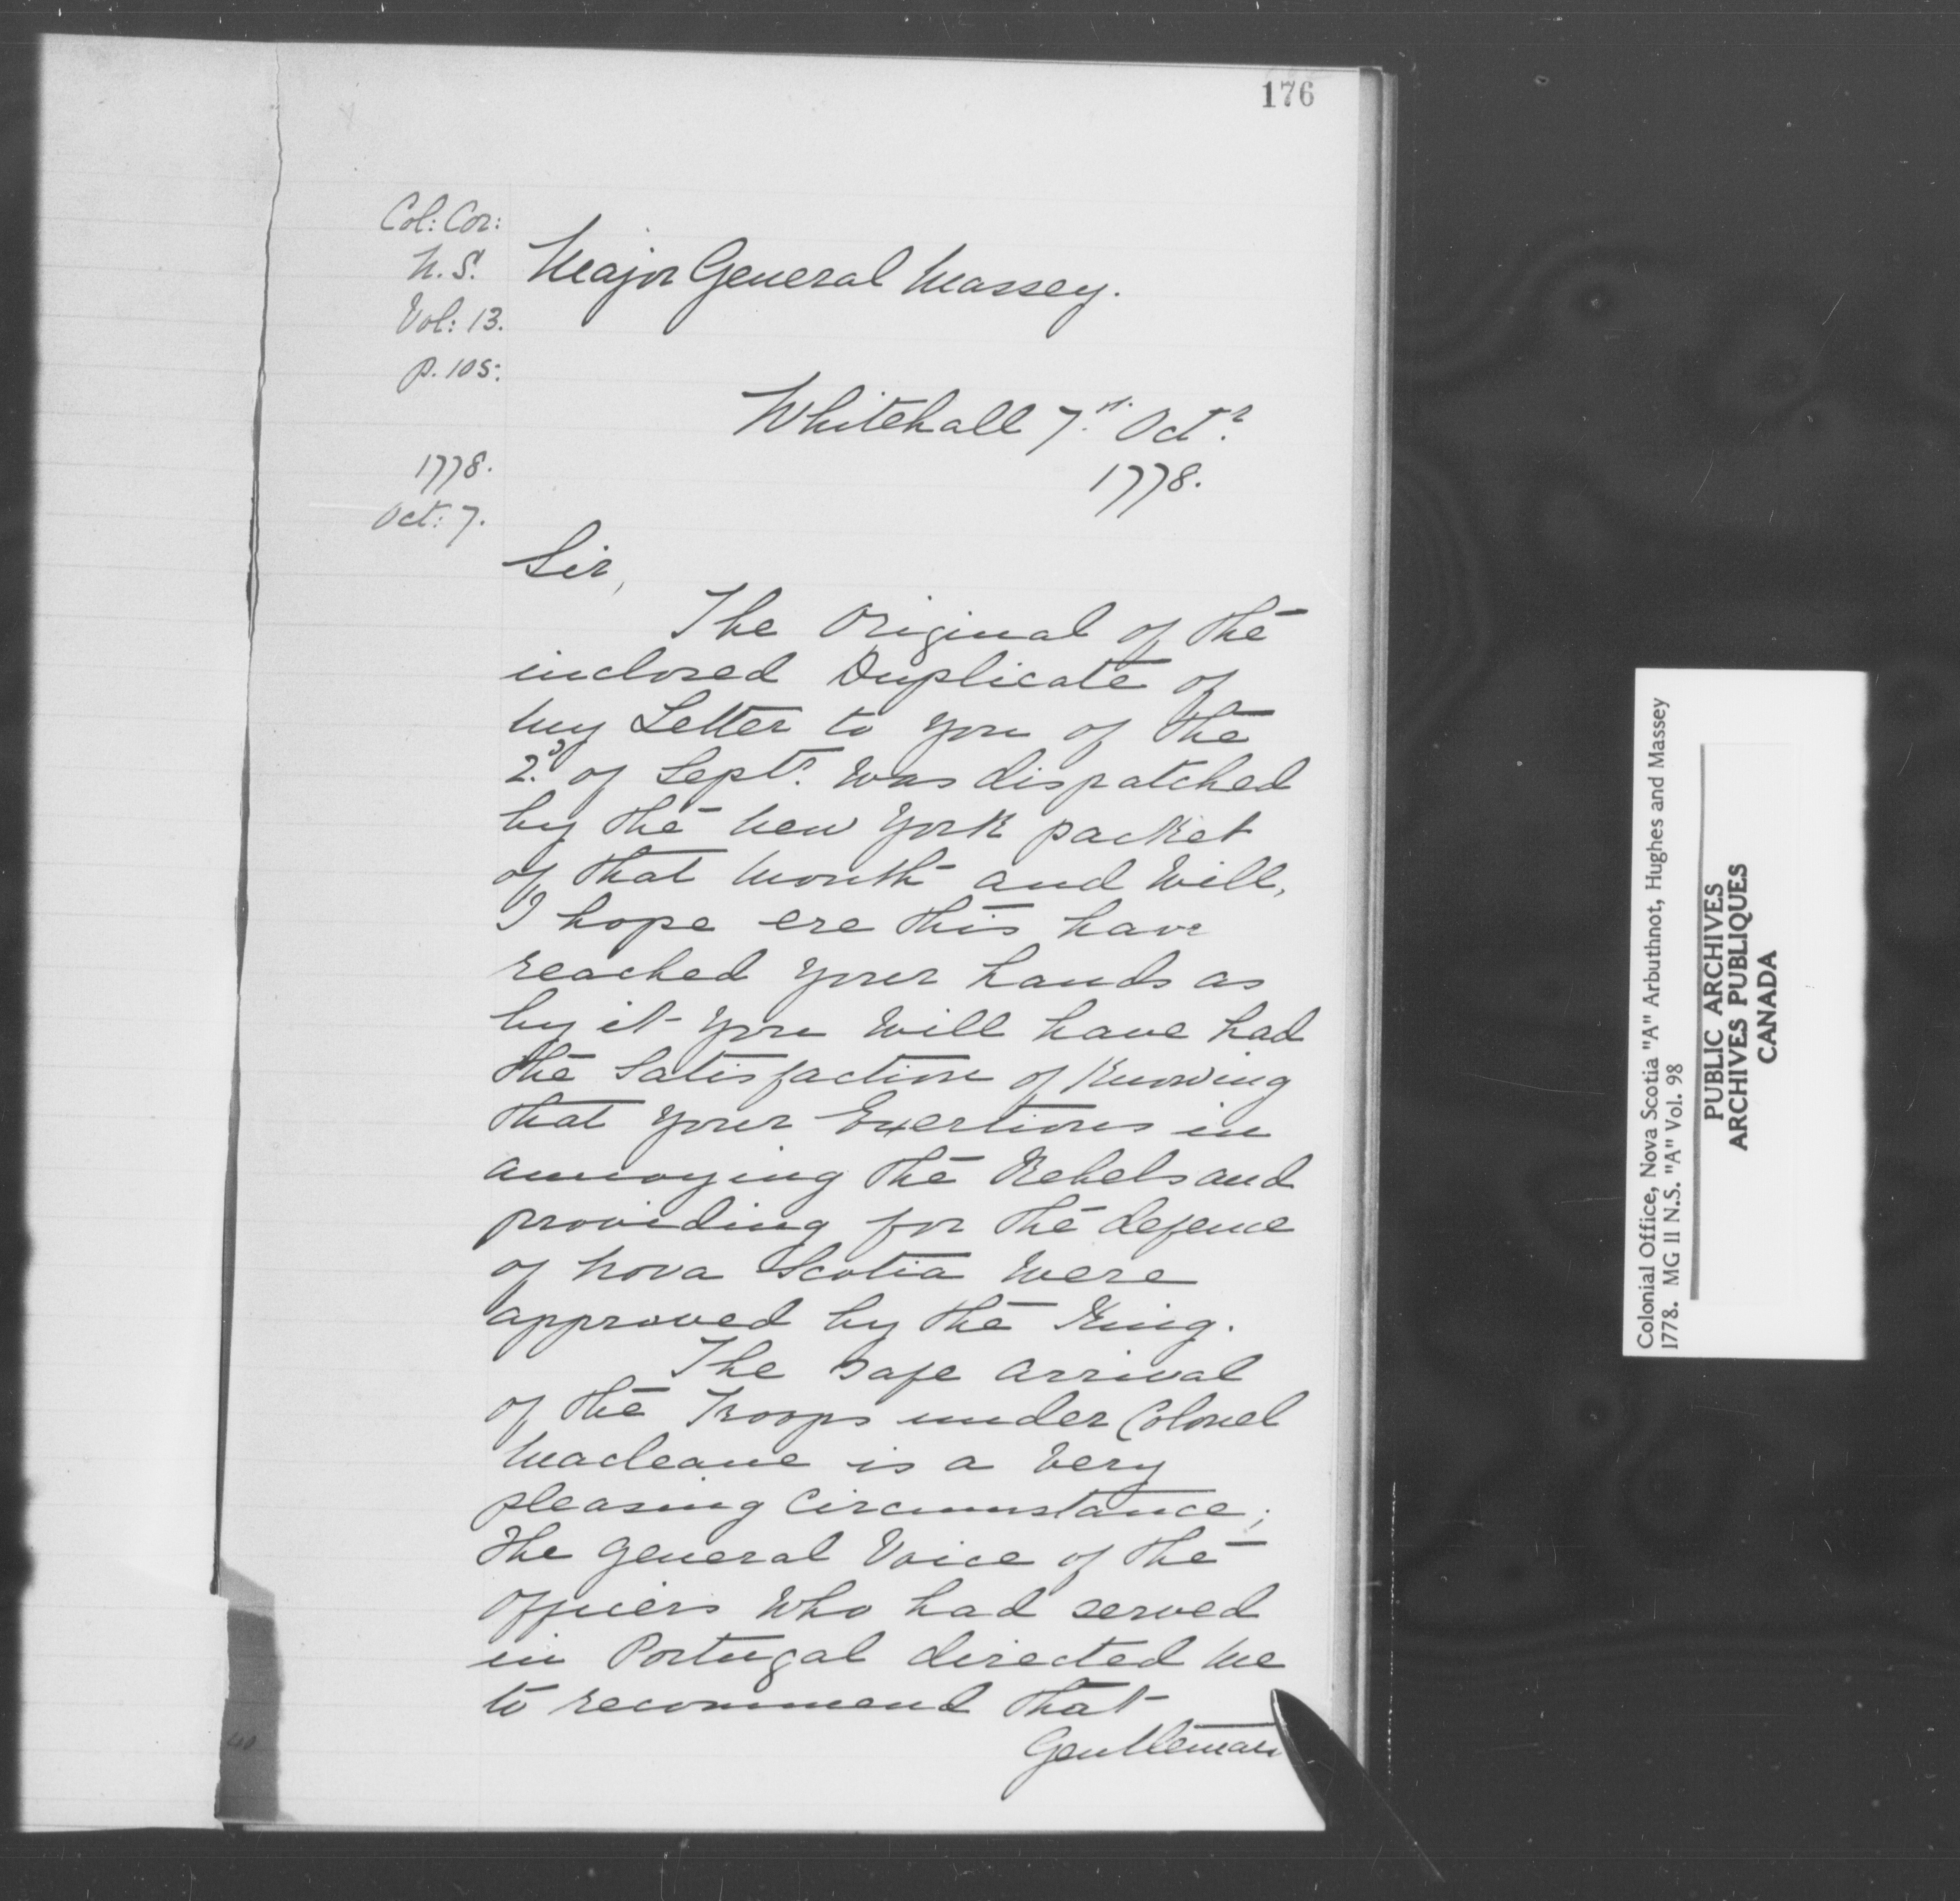 176
Col: Cor:
N.S.
Vol: 13.
p. 105.
1778.
Oct: 7.
Major General Massey.
Whitehall 7th. Octr.
1778.
Sir,
The Original of the
inclosed Duplicate of
my Letter to you of the
2d. of Septr. was dispatched
by the New York packet
of that Month and Will,
I hope ere this have
reached your hands as
by it you will have had
the Satisfaction of Knowing
that your Exertions in
annoying the Rebels and
providing for the defence
of Nova Scotia Were
approved by the King.
The safe arrival
of the Troops under Colonel
Macleane is a very
pleasing Circumstance;
the general Voice of the
Officers Who had served
in Portugal directed me
to recommend that
Gentleman
Colonial Office, Nova Scotia "A" Arbuthnot, Hughes and Massey
1778. MG 11 N.S. "A" Vol. 98
PUBLIC ARCHIVES
ARCHIVES PUBLIQUES
CANADA